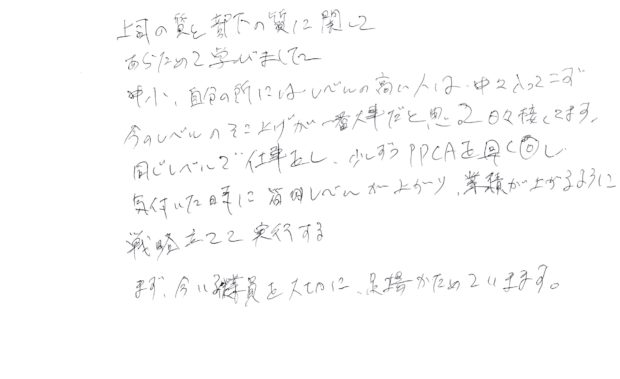 上司の質と部下の質に関して
あらためて学びまして
中小、自分の所にはレベルの高い人は、中々入ってこず
今のレベルのそこ上げが一番大事だと思って日々接してます。
同じレベルで仕事をし、少しずつPPCAを早く回し
気付いた時に皆レベルが上がり、業績が上がるように
戦略立てて実行する
まず、今いる職員を大切に、足場かためていきます。